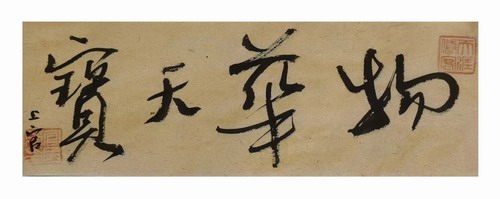 物華天寶
上官